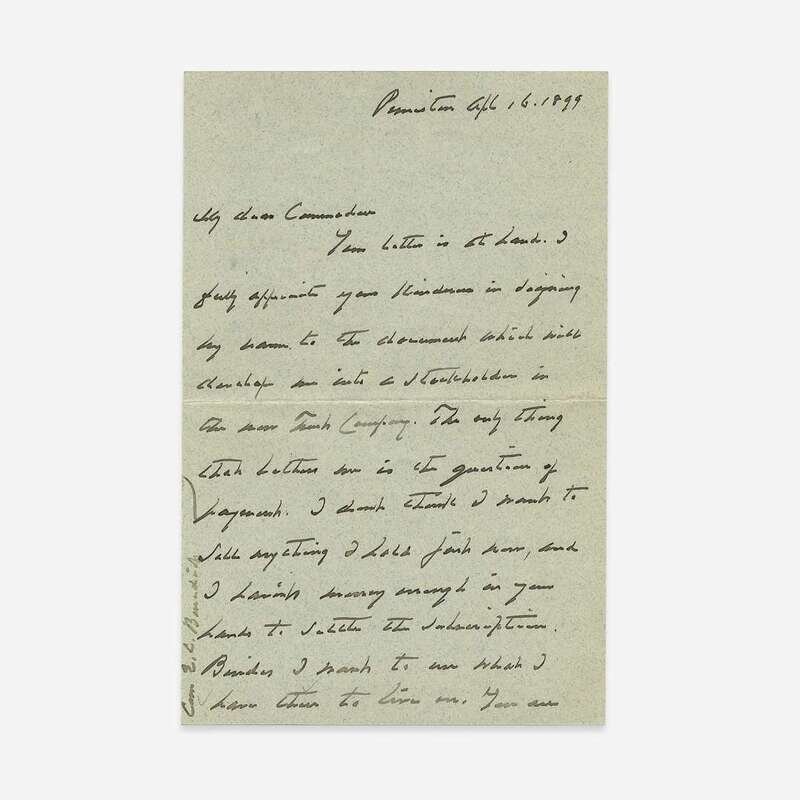 Princeton Apl 16. 1899
My dear Commodore
Your letter is at hand. I
fully appreciate your kindness in signing
my name to the document which will
develop me into a stockholder in
the new Trust Company. The only thing
that bothers me is the question of
payment. I don't think I want to
sell anything I hold just now, and
I haven't money enough in your
hands to settle the subscription.
Besides I want to use what I
have there to live on. You are
Com E. C. Benedict